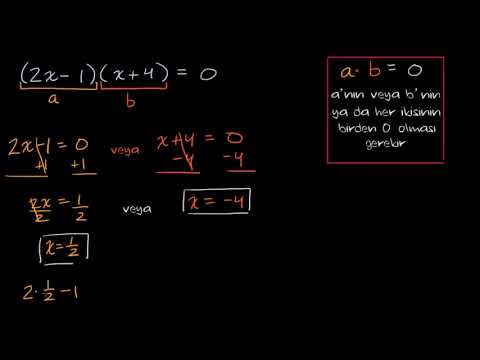 (2x-1)(x+4) = 0
a b
a · b = 0
a'nın veya b'nin
ya da her ikisinin
birden 0 olması
gerekir
2x-1 = 0 veya x+4 = 0
+1 +1 -4 -4
2x/2 = 1/2 veya x = -4
x = 1/2
2 · 1/2 - 1